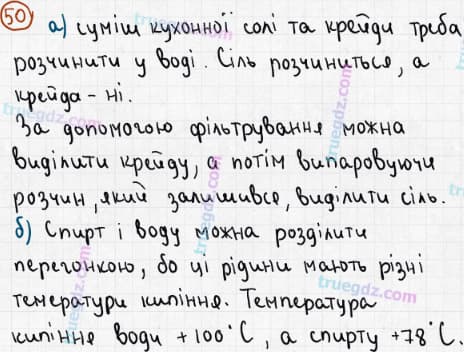 50 а) суміш кухонної солі та крейди треба
розчинити у воді. Сіль розчиниться, а
крейда - ні.
За допомогою фільтрування можна
виділити крейду, а потім випаровуючи
розчин, який залишився, виділити сіль.
б) Спирт і воду можна розділити
перегонкою, бо ці рідини мають різні
температури кипіння. Температура
кипіння води +100°С, а спирту +78°С.
truegdz.com
truegdz.com
truegdz.com
truegdz.com
truegdz.com
truegdz.com
truegdz.com